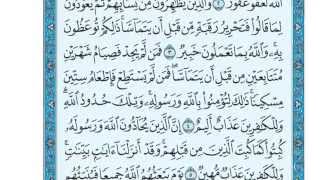 ٱللَّهَ لَعَفُوٌّ غَفُورٌ ٢ وَٱلَّذِينَ يُظَٰهِرُونَ مِن نِّسَآئِهِمْ ثُمَّ يَعُودُونَ
لِمَا قَالُوا۟ فَتَحْرِيرُ رَقَبَةٍ مِّن قَبْلِ أَن يَتَمَآسَّا ۚ ذَٰلِكُمْ تُوعَظُونَ
بِهِۦ ۚ وَٱللَّهُ بِمَا تَعْمَلُونَ خَبِيرٌ ٣ فَمَن لَّمْ يَجِدْ فَصِيَامُ شَهْرَيْنِ
مُتَتَابِعَيْنِ مِن قَبْلِ أَن يَتَمَآسَّا ۖ فَمَن لَّمْ يَسْتَطِعْ فَإِطْعَامُ سِتِّينَ
مِسْكِينًا ۚ ذَٰلِكَ لِتُؤْمِنُوا۟ بِٱللَّهِ وَرَسُولِهِۦ ۚ وَتِلْكَ حُدُودُ ٱللَّهِ ۗ
وَلِلْكَٰفِرِينَ عَذَابٌ أَلِيمٌ ٤ إِنَّ ٱلَّذِينَ يُحَآدُّونَ ٱللَّهَ وَرَسُولَهُۥ
كُبِتُوا۟ كَمَا كُبِتَ ٱلَّذِينَ مِن قَبْلِهِمْ ۚ وَقَدْ أَنزَلْنَآ ءَايَٰتٍۭ بَيِّنَٰتٍ ۚ
وَلِلْكَٰفِرِينَ عَذَابٌ مُّهِينٌ ٥ يَوْمَ يَبْعَثُهُمُ ٱللَّهُ جَمِيعًا فَيُنَبِّئُهُم